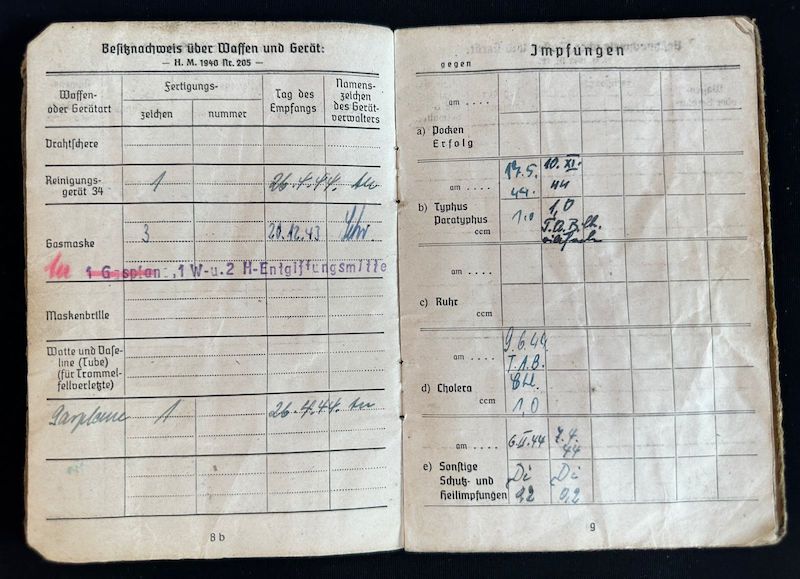 Besitznachweis über Waffen und Gerät:
— H. M. 1940 Nr. 205 —
Waffen- oder Gerätart
Fertigungs-
zeichen
nummer
Tag des Empfangs
Namens- zeichen des Gerät- verwalters
Drahtschere
Reinigungs-
gerät 34 1 26.4.44.
Gasmaske 3 20.12.43
1 Gasplan. ,1 W-u.2 H-Entgiftungsmitte
Maskenbrille
Watte und Vase-
line (Tube)
(für Trommel-
fellverletzte)
1 26.4.44.
8 b
Impfungen
gegen
am . . . .
a) Pocken
Erfolg
17.5. 10. XI.
am . . . . 44. 44
b) Typhus 1,0
Paratyphus 1.0 T.A.B.
ccm
am . . . .
c) Ruhr
ccm
9.6.44
am . . . . T.A.B.
d) Cholera
ccm 1,0
am . . . . 6.II.44 7.4.
44
e) Sonstige Di Di
Schutz- und
Heilimpfungen 0,2 0,2
9